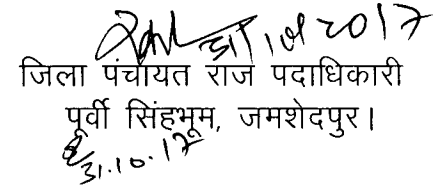 31/10/2017
जिला पंचायत राज पदाधिकारी
पूर्वी सिंहभूम, जमशेदपुर।
31.10.17